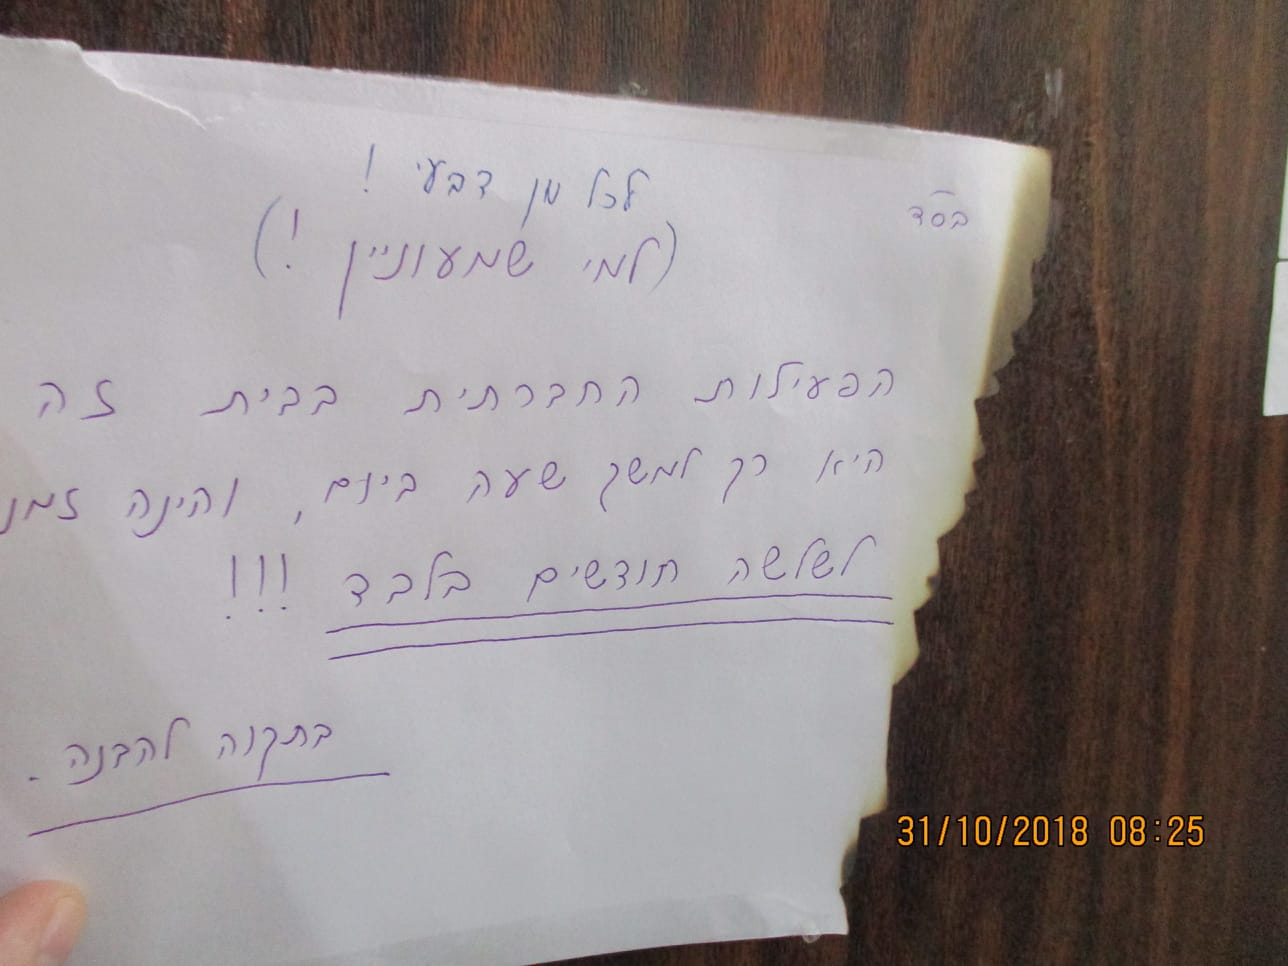 בס״ד
לכל מן דבעי !
(למי שמעוניין !)
הפעילות החברתית בבית זה
היא רק למשך שעה ביום, והינה זמנ
לשלשה חודשים בלבד !!!
בתקוה להבנה .
31/10/2018 08:25